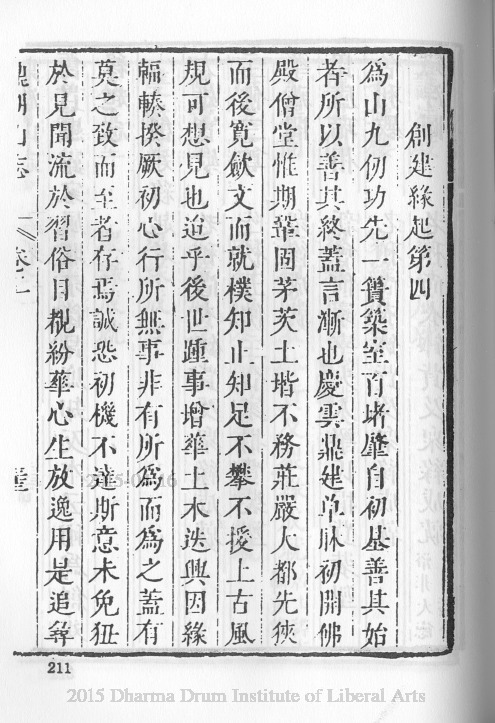 創建緣起第四
為山九仞功先一簣築室百堵肇自初基善其始
者所以善其終蓋言漸也慶雲鼎建草昧初開佛
殿僧堂惟期鞏固茅茨土堦不務莊嚴大都先狹
而後寬斂文而就樸知止知足不攀不援上古風
規可想見也迨乎後世踵事增華土木迭興因緣
輻輳揆厥初心行所無事非有所為而為之蓋有
莫之致而至者存焉誠恐初機不達斯意未免狃
於見聞流於習俗目覩紛華心生放逸用是追尋
鼎湖山志
卷之一
211
2015 Dharma Drum Institute of Liberal Arts